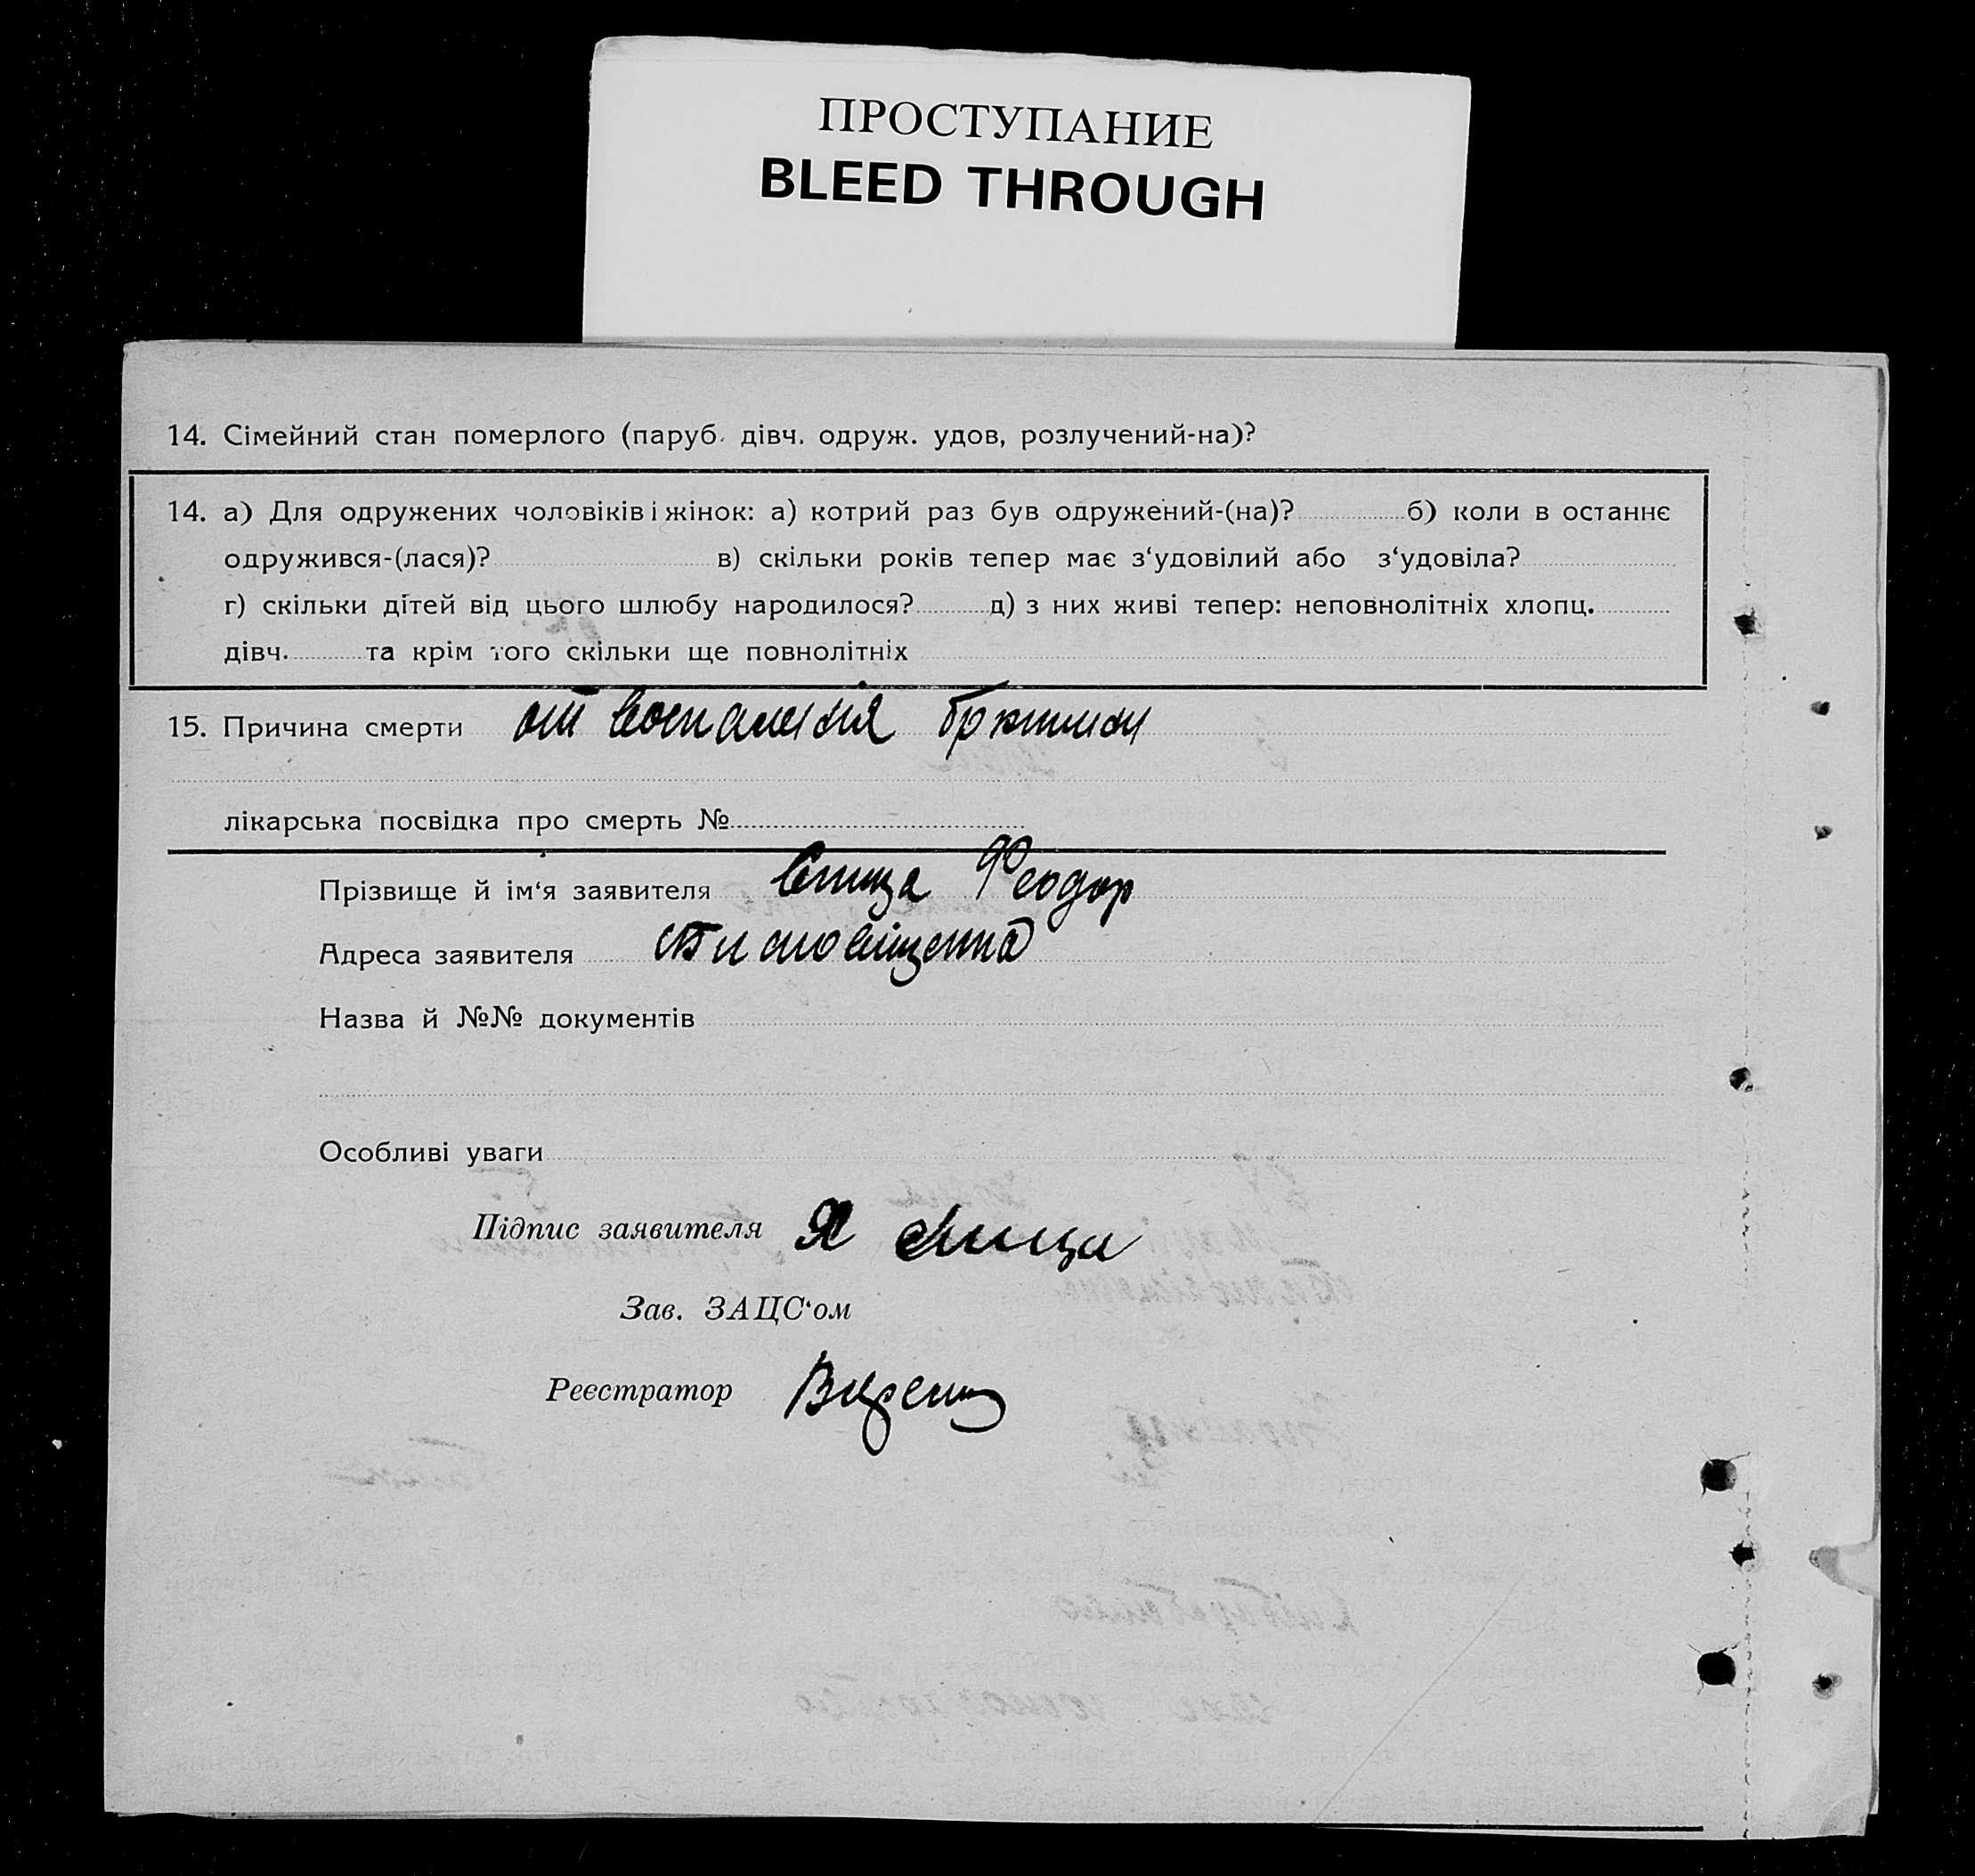 ПРОСТУПАНИЕ
BLEED THROUGH
14. Сімейний стан померлого (паруб. дівч. одруж. удов, розлучений-на)?
14. а) Для одружених чоловіків і жінок: а) котрий раз був одружений-(на)? б) коли в останнє
одружився-(лася)? в) скільки років тепер має з‘удовілий або з‘удовіла?
г) скільки дітей від цього шлюбу народилося? д) з них живі тепер: неповнолітніх хлопц.
дівч. та крім того скільки ще повнолітніх
15. Причина смерти от воспаления
лікарська посвідка про смерть №
Прізвище й ім‘я заявителя Спица Феодор
Адреса заявителя
Назва й №№ документів
Особливі уваги
Підпис заявителя Спица
Зав. ЗАЦС‘ом
Реєстратор